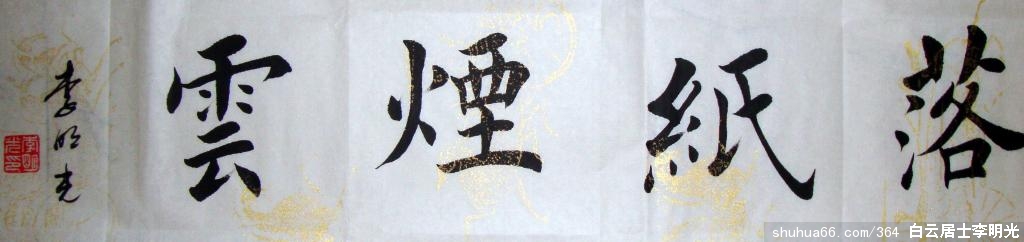 落紙煙雲
李明光
李明光印
shuhua66.com/364 白云居士李明光